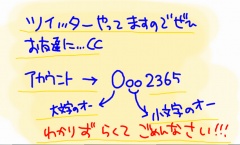 ツイッターやってますのでぜひ
お友達に...CC
アカウント → Ooo2365
大文字のオー 小文字のオー
わかりずらくてごめんなさい!!!